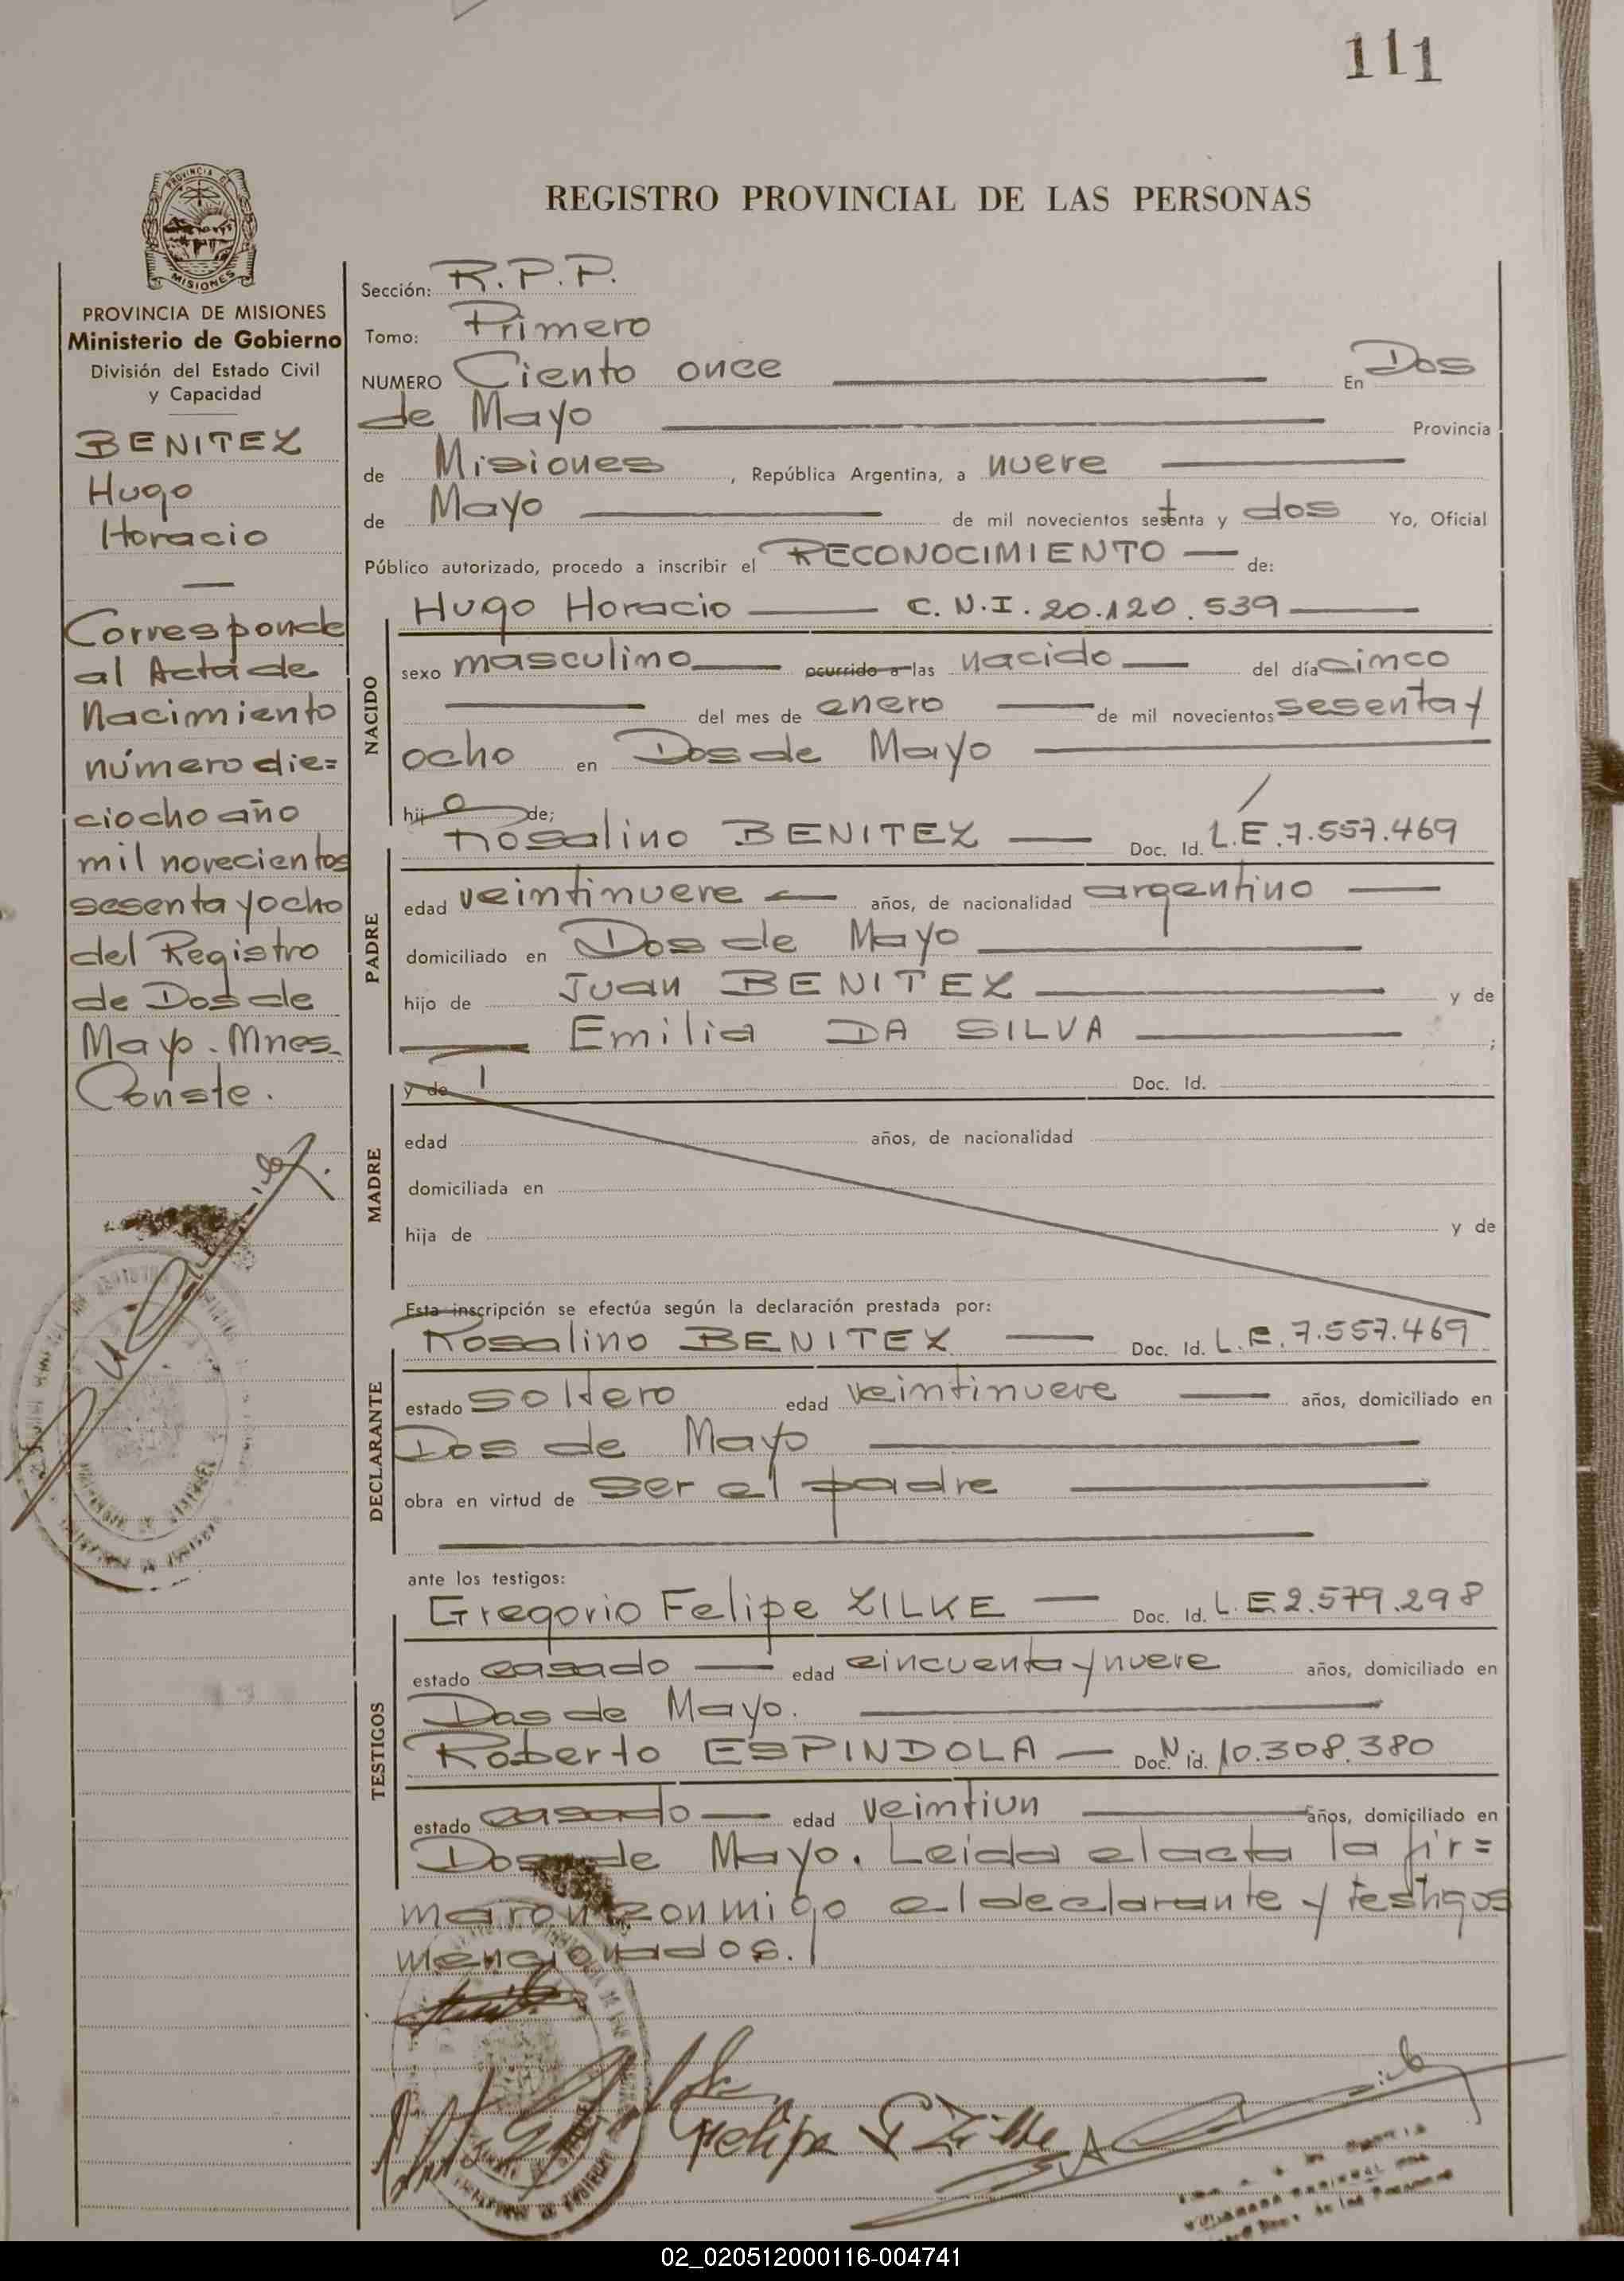 111
PROVINCIA DE
MISIONES
REGISTRO PROVINCIAL DE LAS PERSONAS
PROVINCIA DE MISIONES
Ministerio de Gobierno
División del Estado Civil
y Capacidad
BENITEZ
Hugo
Horacio
Corresponde
al Acta de
Nacimiento
número die=
ciocho año
mil novecientos
sesenta y ocho
del Registro
de Dos de
Mayo. Mnes.
Conste.
Sección: R.P.P.
Tomo: Primero
NUMERO Ciento once En Dos
de Mayo Provincia
de Misiones, República Argentina, a nueve
de Mayo de mil novecientos setenta y dos Yo, Oficial
Público autorizado, procedo a inscribir el RECONOCIMIENTO de:
NACIDO
Hugo Horacio C.N.I. 20.120.539
sexo masculino ocurrido a las nacido del día cinco
del mes de enero de mil novecientos sesenta y
ocho en Dos de Mayo
hijo de;
PADRE
Rosalino BENITEZ Doc. Id. L.E. 7.557.469
edad veintinueve años, de nacionalidad argentino
domiciliado en Dos de Mayo
hijo de Juan BENITEZ y de
Emilia DA SILVA ;
MADRE
y de Doc. Id.
edad años, de nacionalidad
domiciliada en
hija de y de
Esta inscripción se efectúa según la declaración prestada por:
DECLARANTE
Rosalino BENITEZ Doc. Id. L.E. 7.557.469
estado soltero edad veintinueve años, domiciliado en
Dos de Mayo
obra en virtud de ser el padre
ante los testigos:
TESTIGOS
Gregorio Felipe ZILKE Doc. Id. L.E 2.579.298
estado casado edad cincuenta y nueve años, domiciliado en
Dos de Mayo.
Roberto ESPINDOLA Doc. N id. 10.308.380
estado casado edad veintiun años, domiciliado en
Dos de Mayo. Leida el acta la fir=
maron conmigo el declarante y testigos
mencionados.
Felipe G Zilke
02_020512000116-004741